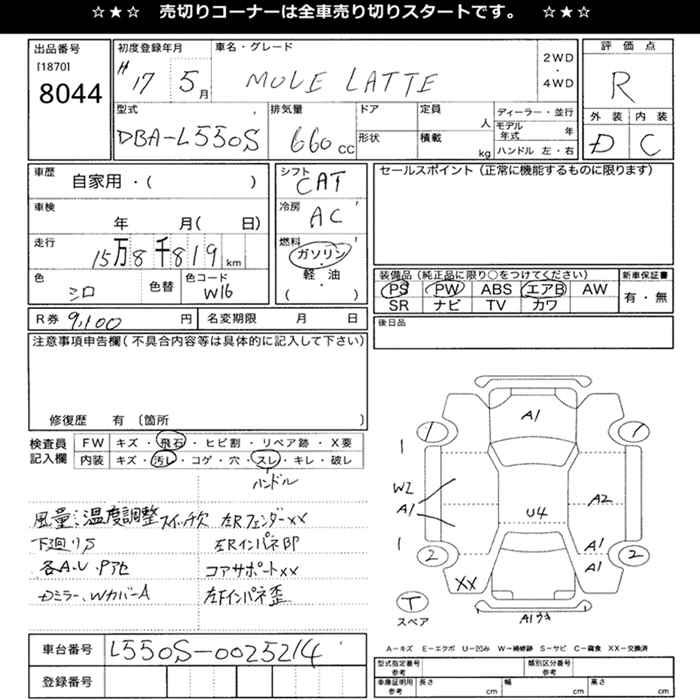 ☆★☆ 売切りコーナーは全車売り切りスタートです。 ☆★☆
出品番号
[1870]
8044
初度登録年月
H 17 5月
車名・グレード
MOVE LATTE
2WD
・
4WD
評価点
R
外装 内装
D C
型式
DBA-L550S
排気量
660 CC
ドア
形状
定員
人
積載
kg
ディーラー・並行
モデル年式 年
ハンドル 左・右
車歴
自家用・( )
車検
年 月( 日)
走行
15万8千819km
色
シロ
色替
色コード
W16
シフト
CAT
冷房
AC
燃料
ガソリン
・
軽・油
( )
セールスポイント(正常に機能するものに限ります)
装備品(純正品に限り○をつけてください)
PS PW ABS エアB AW
SR ナビ TV カワ
新車保証書
有・無
R券 9,100 円
名変期限 月 日
後日品
注意事項申告欄(不具合内容等は具体的に記入して下さい)
修復歴 有〔箇所 〕
検査員記入欄
FW キズ・飛石・ヒビ割・リペア跡・X要
内装 キズ・汚レ・コゲ・穴・スレ・キレ・破レ
ハンドル
風量、温度調整スイッチ欠
下廻りS
各A・U・P了他
Dミラー、WカバーA
左RフェンダーXX
左Rインパネ印
コアサポートXX
左Fインパネ歪
A1
1
1
1
W2
A1
A2
U4
1
2
A1
A1
2
XX
T
スペア
A1ワキ
A−キズ E−エクボ U−凹み W−補修跡 S−サビ C−腐食 XX−交換済
車台番号
L550S-0025214
登録番号
型式指定番号
参考
類別区分番号
参考
車庫証明用
参考
長さ cm
幅 cm
高さ cm